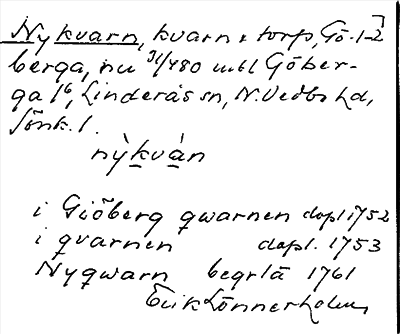 Nykvarn, kvarn o torp, Gö-1-2
berga, nu 31/480 utbl Göber-
ga 1⁶, Linderås sn, N. Vedbo hd,
Jönk. l.
nỳkvàn
i Giöberg qwarnen dopl 1752
i qvarnen dopl. 1753
Nyqwarn begrlä 1761
Erik Lönnerholm